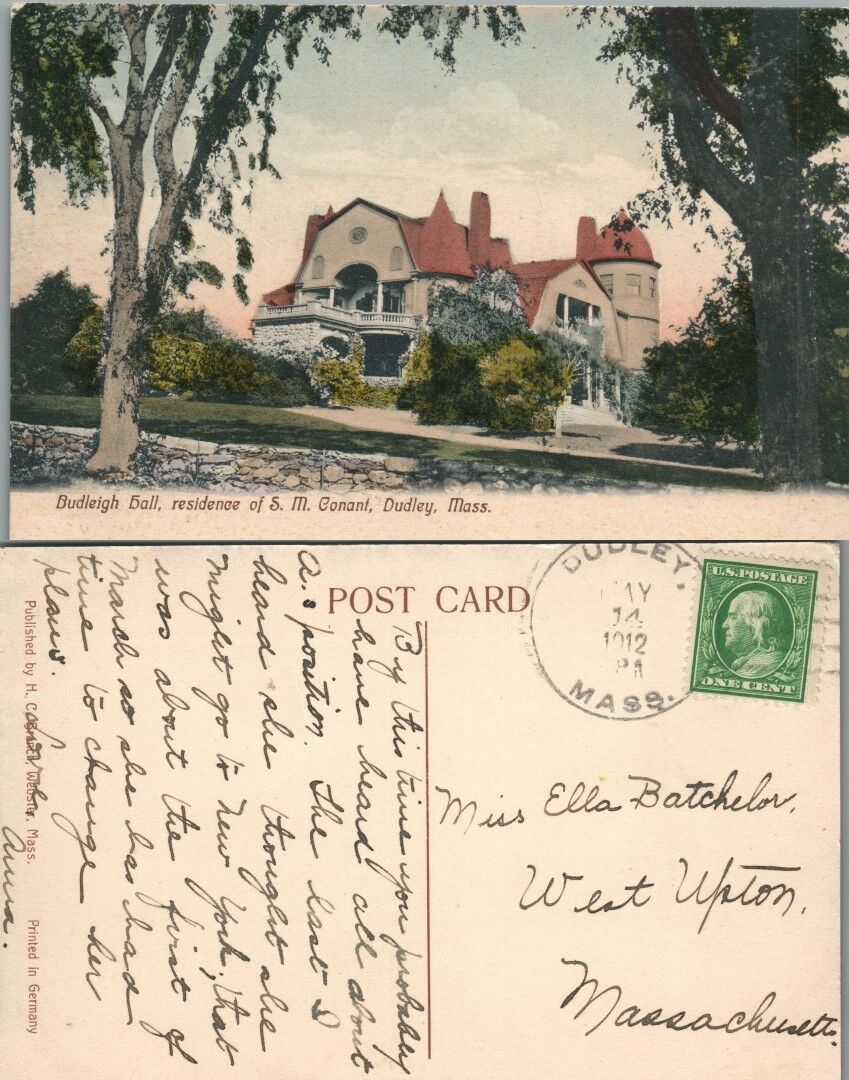 Budleigh Hall, residence of S. M. Conant, Dudley, Mass.
POST CARD
DUDLEY,
MAY
14
1912
MASS.
U.S. POSTAGE
ONE CENT
By this time you probably
have heard all about
A.'s position. The last I
heard she thought she
might go to New York, that
was about the first of
March so she has had
time to change her
plans.
Anna.
Miss Ella Batchelor,
West Upton,
Massachusetts.
Published by H. C. Webster, Mass.
Printed in Germany